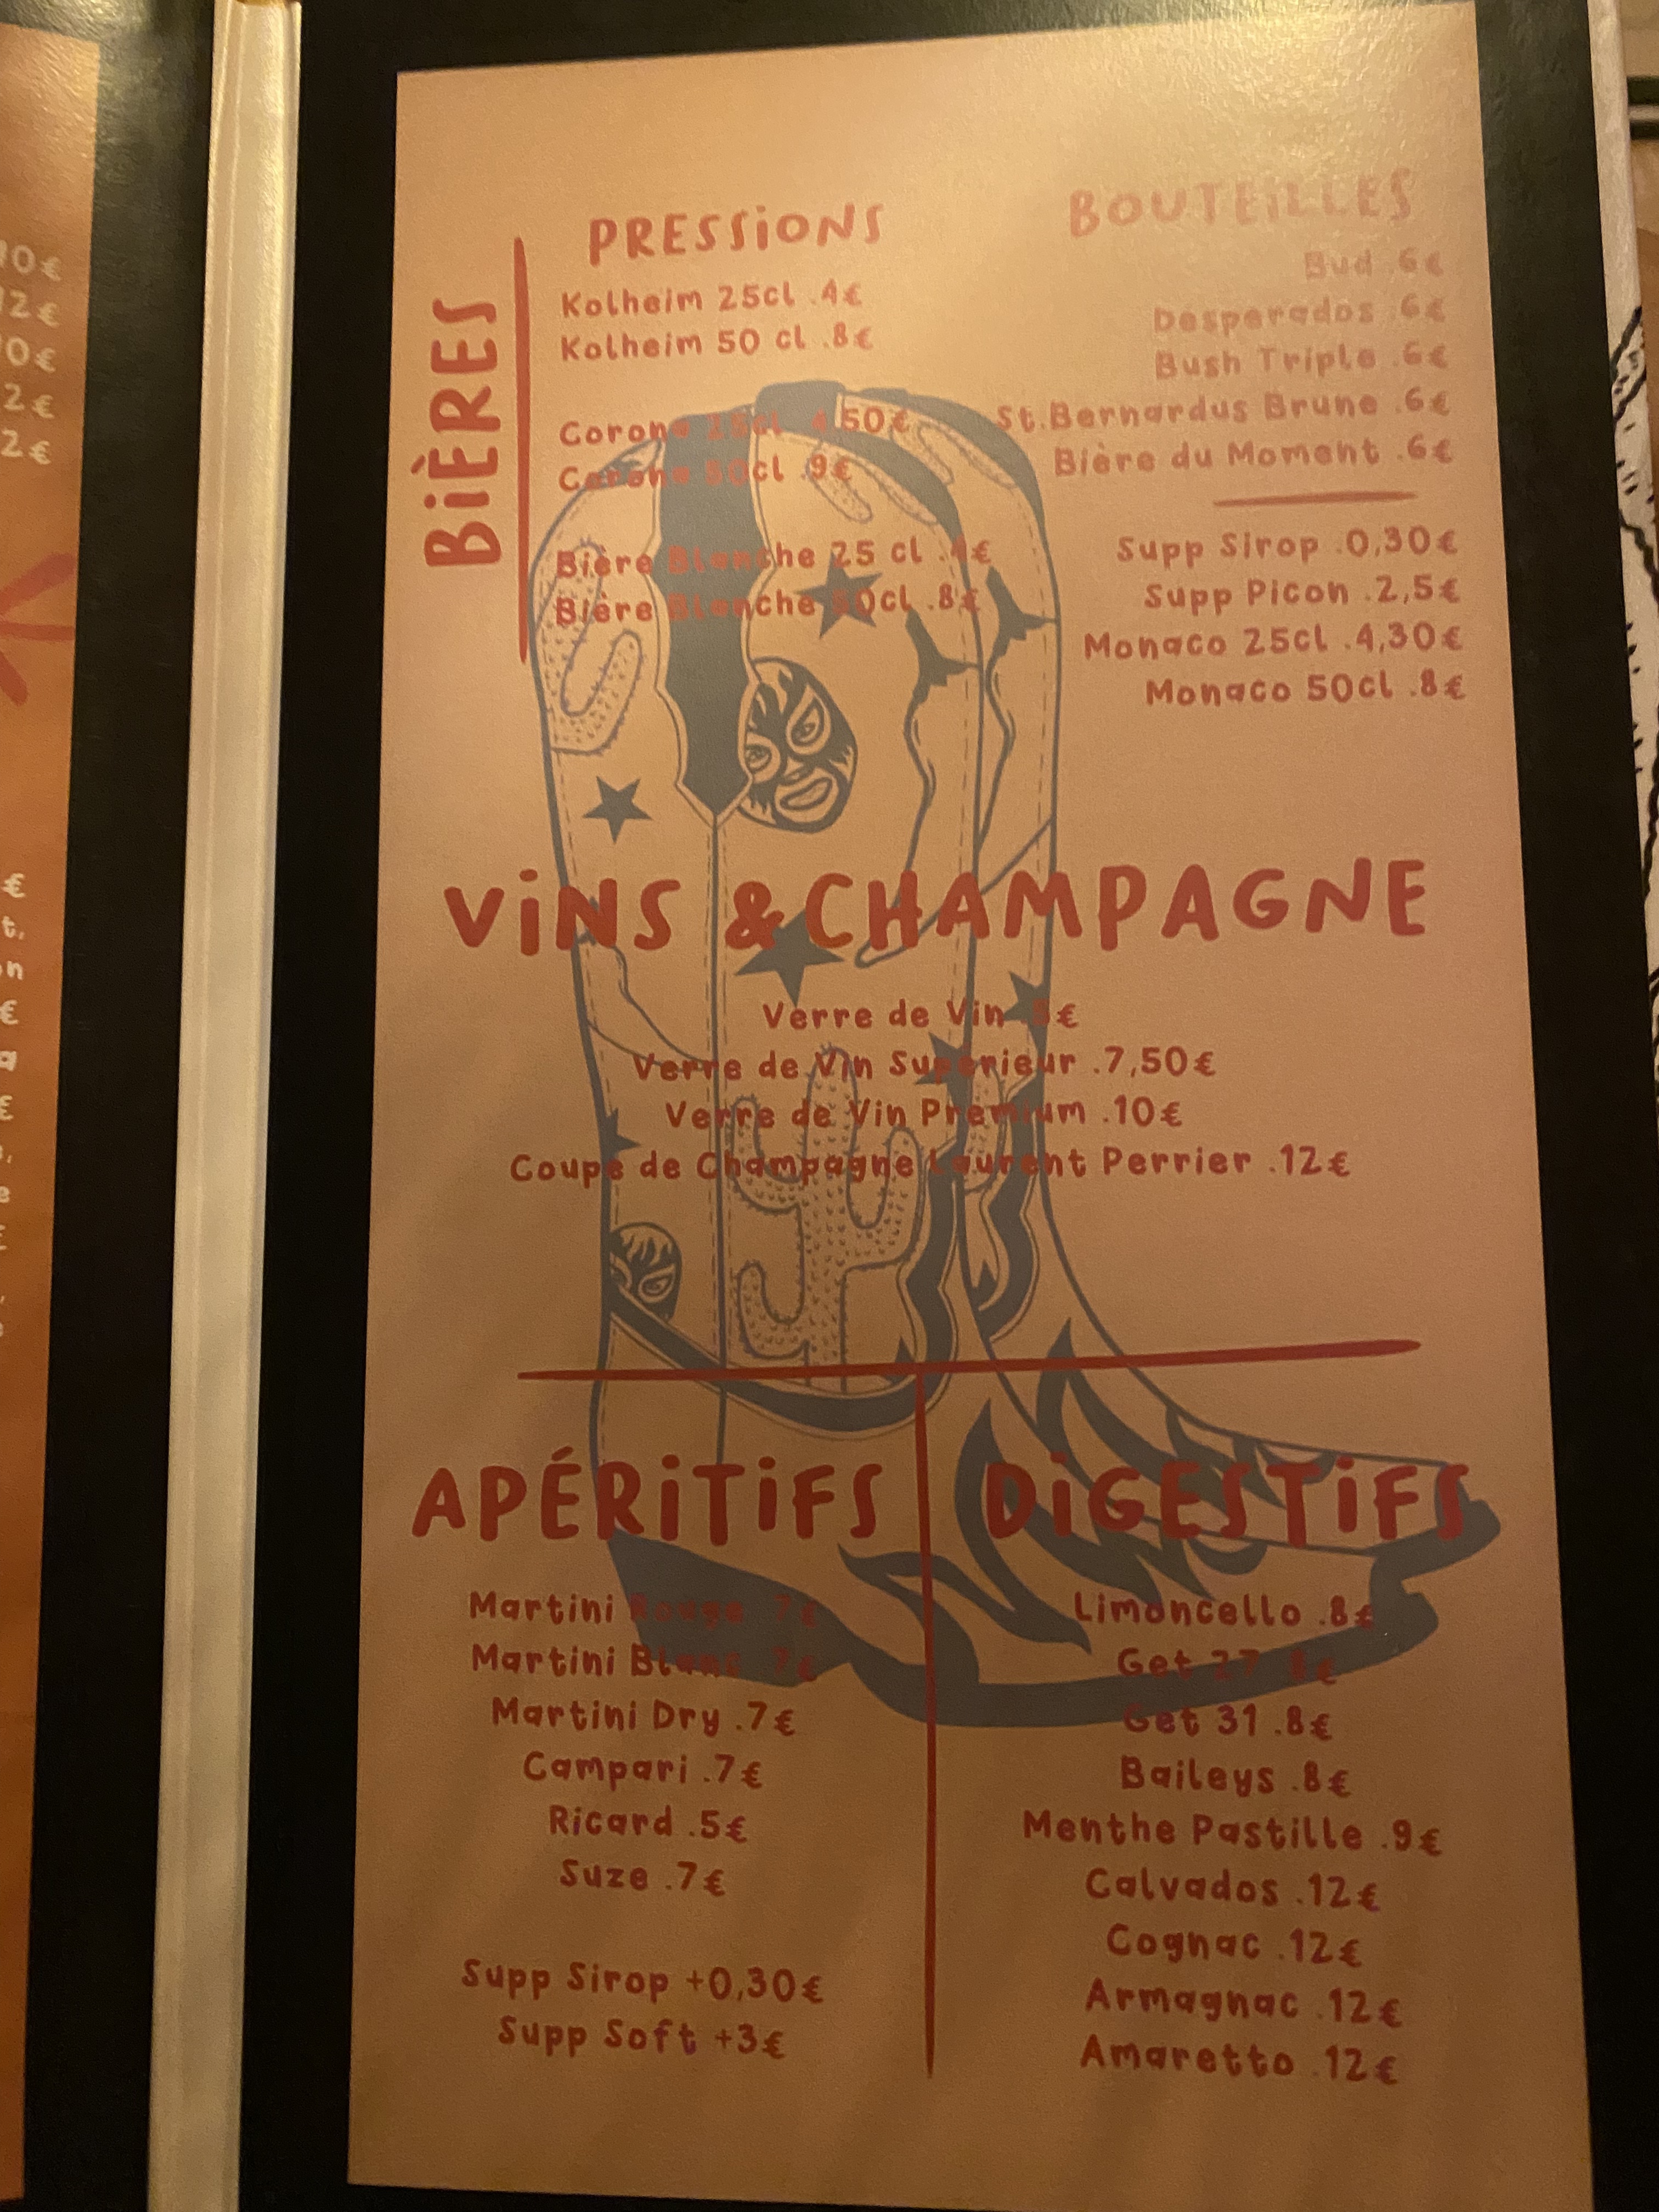 10€
12€
10€
2€
2€
€
t,
on
€
a
€
e
BiÈRES
PRESSiONS
Kolheim 25cl .4€
Kolheim 50 cl .8€
Corona 25cl 4,50€
Corona 50cl .9€
Bière Blanche 25 cl .4€
Bière Blanche 50cl .8€
BOUTEiLLES
Bud .6€
Desperados .6€
Bush Triple .6€
St.Bernardus Brune .6€
Bière du Moment .6€
Supp Sirop .0,30€
Supp Picon .2,5€
Monaco 25cl .4,30€
Monaco 50cl .8€
ViNS & CHAMPAGNE
Verre de Vin €
Verre de Vin Supérieur .7,50€
Verre de Vin Premium .10€
Coupe de Champagne Laurent Perrier .12€
APÉRiTiFS
Martini Rouge 7€
Martini Blanc 7€
Martini Dry .7€
Campari .7€
Ricard .5€
Suze .7€
Supp Sirop +0,30€
Supp Soft +3€
DiGESTiFS
Limoncello .8€
Get 27 8€
Get 31 .8€
Baileys .8€
Menthe Pastille .9€
Calvados .12€
Cognac .12€
Armagnac .12€
Amaretto .12€